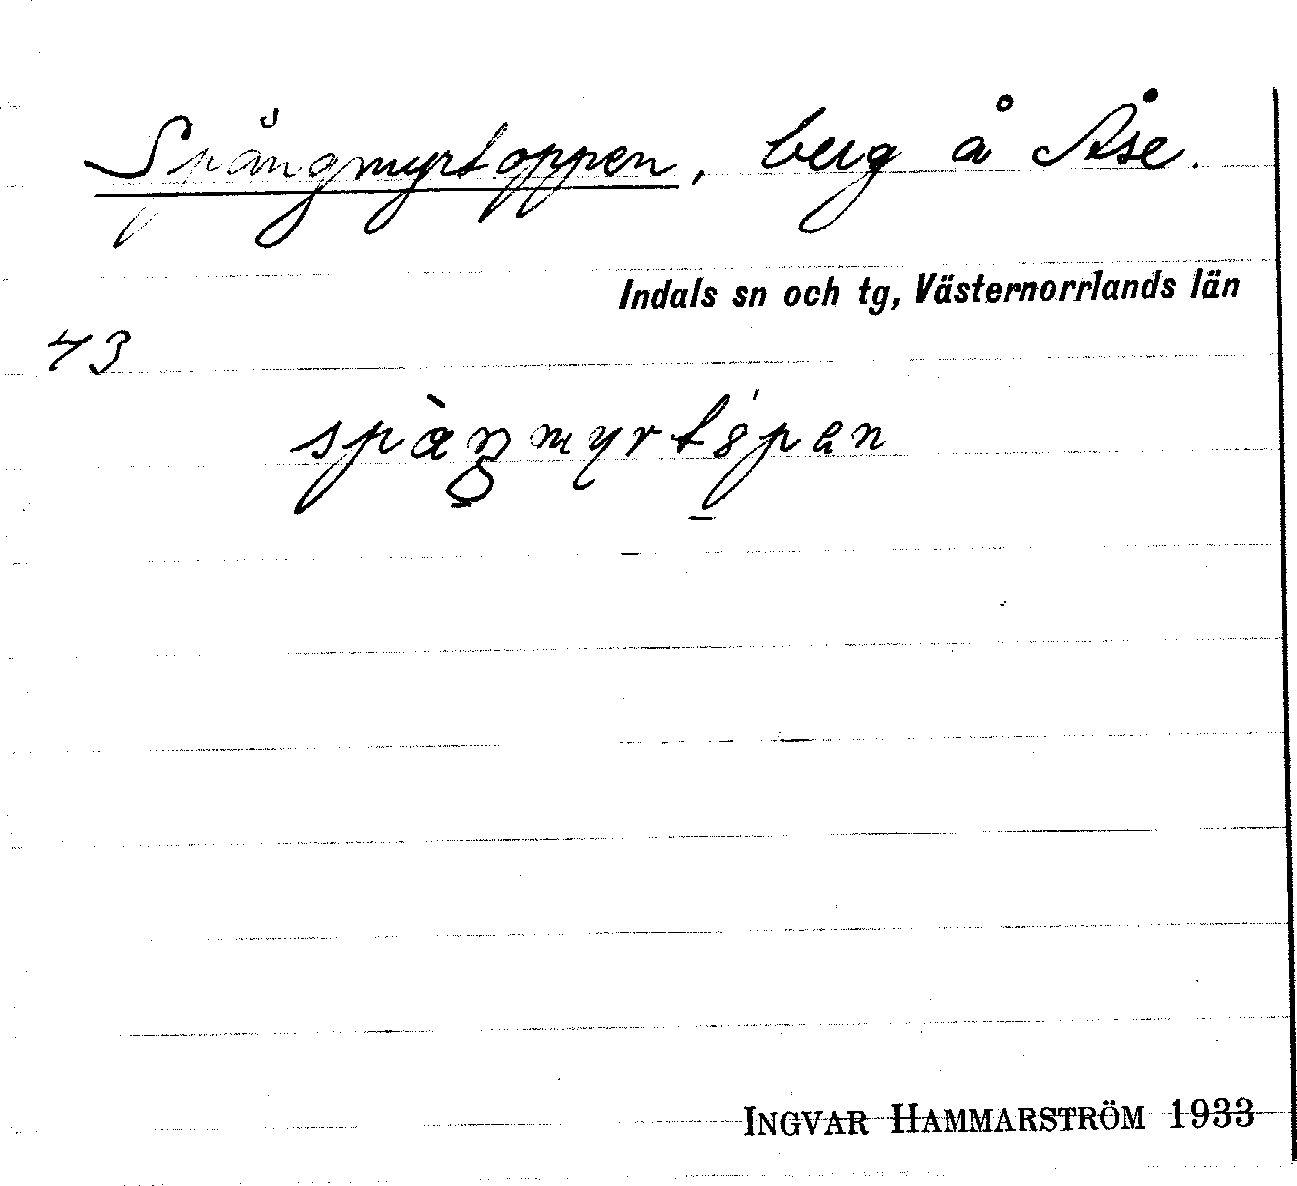 Spångmyrtoppen, berg å Åse.
Indals sn och tg, Västernorrlands län
73
INGVAR HAMMARSTRÖM 1933